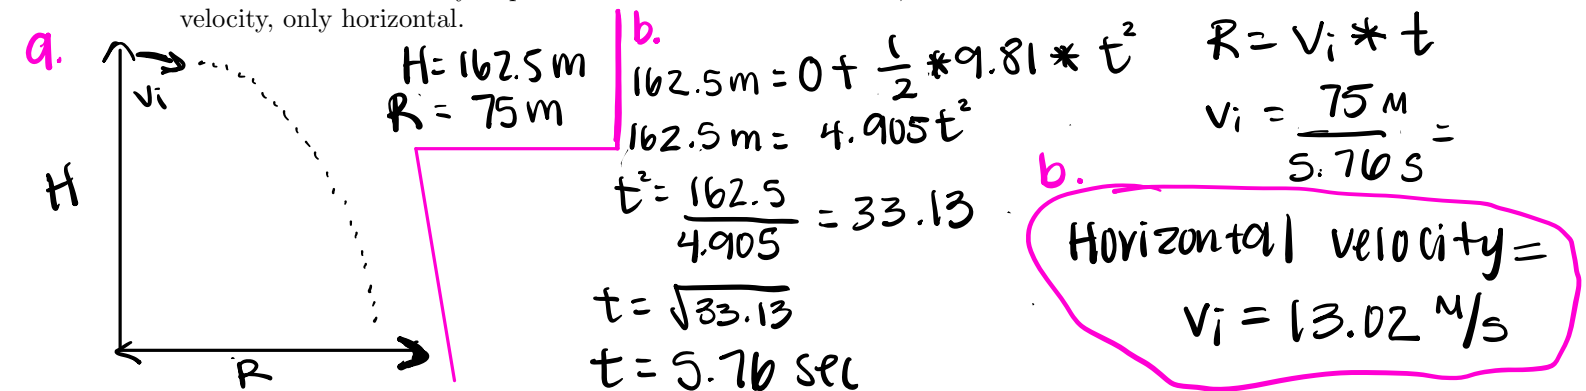 velocity, only horizontal.
a.
Vi
H
R
H = 162.5 m
R = 75 m
b.
162.5 m = 0 + 1/2 * 9.81 * t²
162.5 m = 4.905 t²
t² = 162.5/4.905 = 33.13
t = √33.13
t = 5.76 sec
R = Vi * t
Vi = 75 M/5.76 s =
b.
Horizontal velocity =
Vi = 13.02 M/s